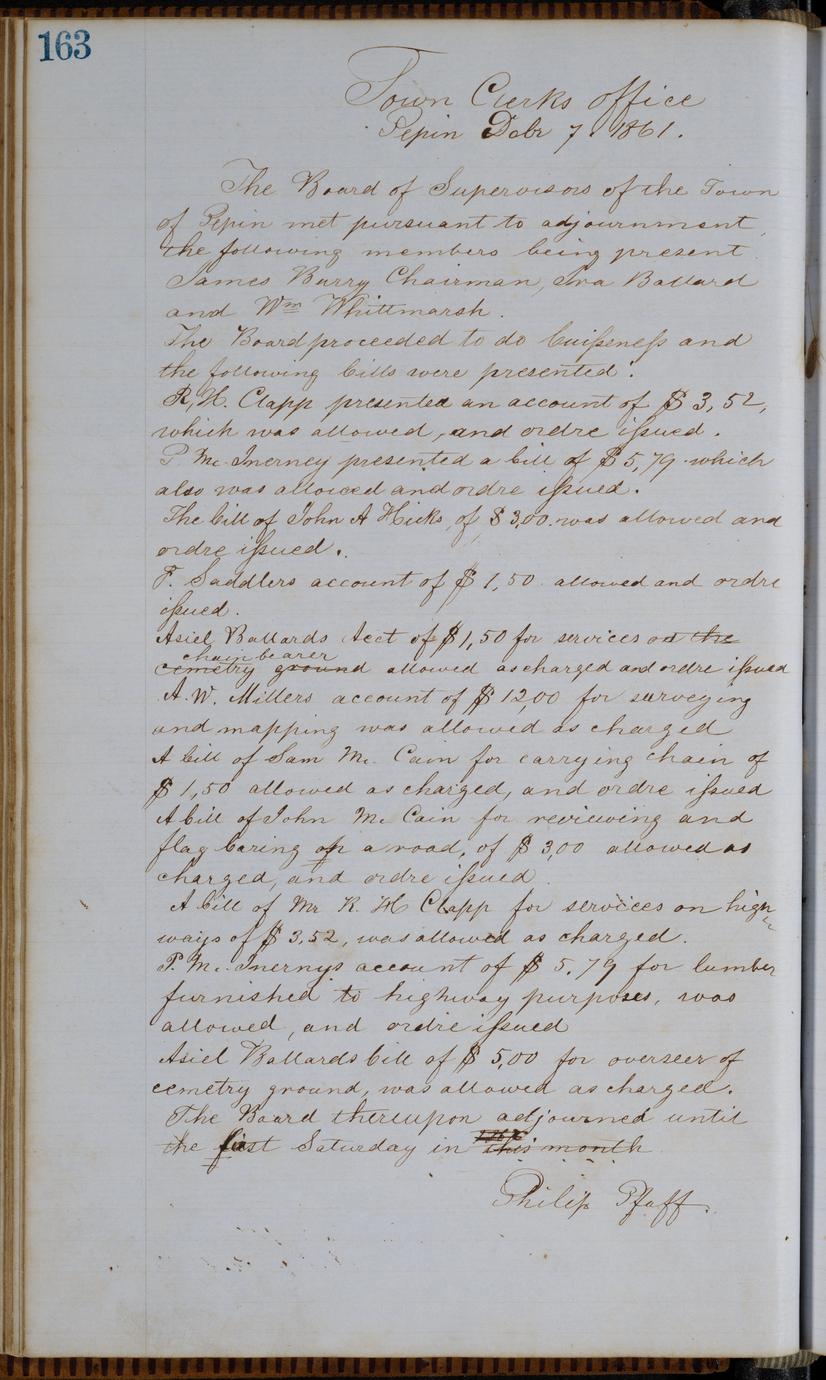 163
Town Clerks office
Pepin Debr 7. 1861.
The Board of Supervisors of the Town
of Pepin met pursuant to adjournment,
the following members being present
James Barry Chairman, Ira Ballard
and Wm Whittmarsh.
The Board proceeded to do buissness and
the following bills were presented.
R, H. Clapp presented an account of $3,52,
which was allowed, and ordre issued.
P Mc. Inerney presented a bill of $5,79 which
also was allowed and ordre issued.
The bill of John A Hicks, of $3,00. was allowed and
ordre issued.
F. Saddlers account of $1,50 allowed and ordre
issued.
Asiel Ballards Acct of $1,50 for services on the
chain bearer
cemetry ground allowed as charged and ordre issued
A. W. Millers account of $12,00 for surveying
and mapping was allowed as charged
A bill of Sam Mc. Cain for carrying chain of
$1,50 allowed as charged, and ordre issued
A bill of John Mc Cain for reviewing and
flag baring of a road, of $3,00 allowed as
charged, and ordre issued.
A bill of Mr R. H Clapp for services on high
ways of $3,52, was allowed as charged.
P. Mc. Inernys account of $5.79 for lumber
furnished to highway purposes, was
allowed, and ordre issued
Asiel Ballards bill of $5,00 for overseer of
cemetry ground, was allowed as charged.
The Board thereupon adjourned until
the last Saturday in this month
Philip Pfaff.